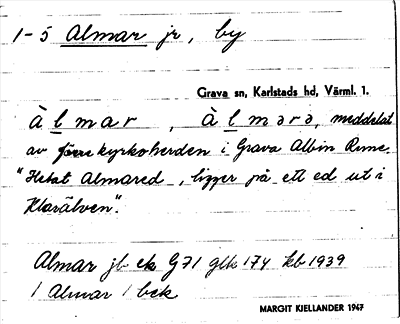 1-5 Almar jr, by
Grava sn, Karlstads hd, Värml. 1.
À l m a r , À l m ə r ə, meddelat
av förre kyrkoherden i Grava Albin Rune.
"Hetat Almared, ligger på ett ed ut i
Klarälven".
Almar jb ek G71 glk 174 kb 1939
1 Almar 1 bek
MARGIT KJELLANDER 1947